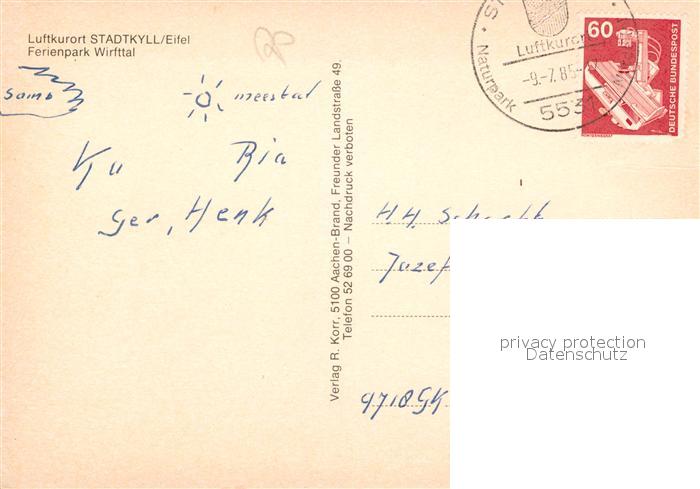 Luftkurort STADTKYLL/Eifel
Ferienpark Wirfttal
soms
meestal
Ria
Ger, Henk
Verlag R. Korr, 5100 Aachen-Brand, Freunder Landstraße 49.
Telefon 52 69 00 – Nachdruck verboten
Luftkurort
-9.-7.85-
Naturpark
553
60
DEUTSCHE BUNDESPOST
H.H.
Jozef
9718GK
privacy protection
Datenschutz